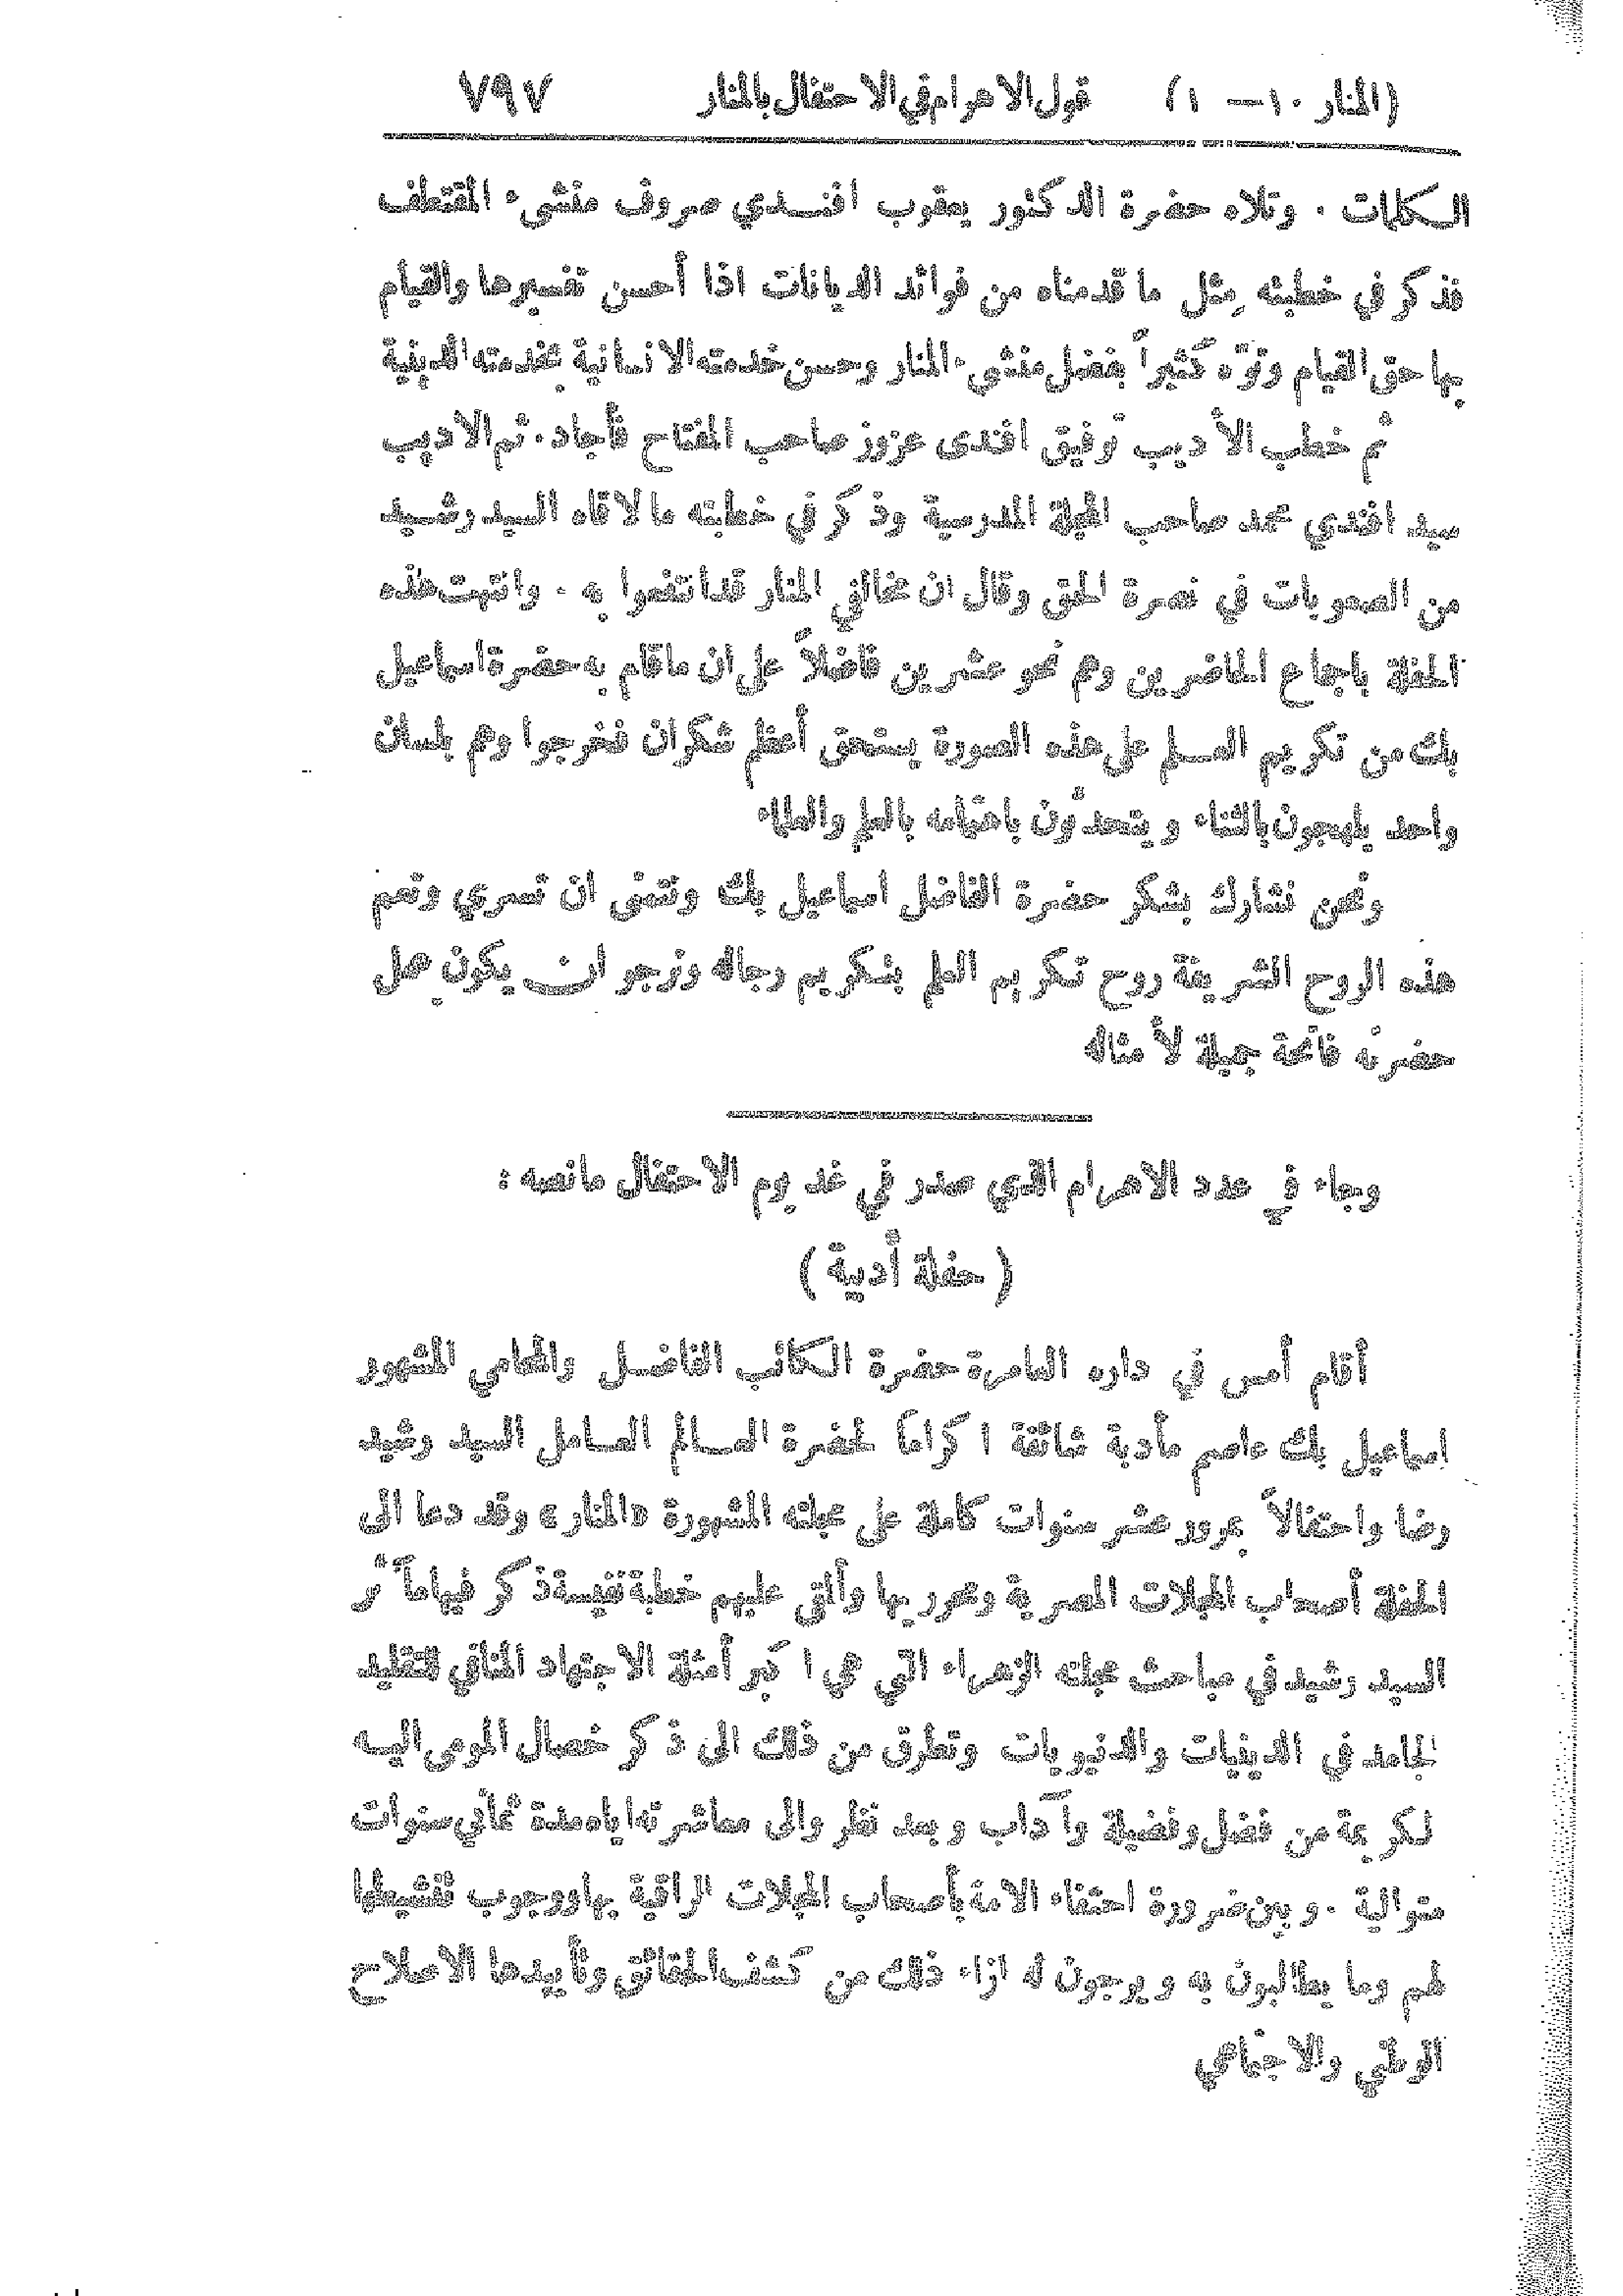 (المنار ١٠ — ١) قول الاهرام في الاحتفال بالمنار ٧٩٧
الكلمات . وتلاه حضرة الدكتور يعقوب افندي صروف منشىء المقتطف
فذكر في خطبته مثل ما قدمناه من فوائد الديانات اذا أحسن تفسيرها والقيام
بها حق القيام ونوّه كثيراً بفضل منشىء المنار وحسن خدمته الانسانية بخدمته الدينية
ثم خطب الأديب توفيق افندى عزوز صاحب المفتاح فأجاد . ثم الاديب
سيد افندي محمد صاحب المجلة المدرسية وذكر في خطبته ما لاقاه السيد رشيد
من الصعوبات في نصرة الحق وقال ان مخالفي المنار قد انتفعوا به . وانتهت هذه
الحفلة باجماع الحاضرين وهم نحو عشرين فاضلاً على ان ماقام به حضرة اسماعيل
بك من تكريم العلم على هذه الصورة يستحق أعظم شكران فخرجوا وهم بلسان
واحد يلهجون بالثناء ويتحدّثون باهتمامه بالعلم والعلماء
ونحن نشارك بشكر حضرة الفاضل اسماعيل بك ونتمنى ان تسري وتعم
هذه الروح الشريفة روح تكريم العلم بتكريم رجاله ونرجو ان يكون عمل
حضرته فاتحة جميلة لأمثاله
وجاء في عدد الاهرام الذي صدر في غد يوم الاحتفال مانصه :
( حفلة أدبية )
أقام أمس في داره العامرة حضرة الكاتب الفاضل والمحامي المشهور
اسماعيل بك عاصم مأدبة شائقة اكراماً لحضرة العالم العامل السيد رشيد
رضا واحتفالاً بمرور عشر سنوات كاملة على مجلته المشهورة «المنار» وقد دعا الى
الحفلة أصحاب المجلات المصرية ومحرريها وألقى عليهم خطبة نفيسة ذكر فيها مآثر
السيد رشيد في مباحث مجلته الزهراء التي هي اكبر أمثلة الاجتهاد المنافي للتقليد
الجامد في الدينيات والدنيويات وتطرق من ذلك الى ذكر خصال المومى اليه
لكريمة من فضل وفضيلة وآداب وبعد نظر والى معاشرته اياه مدة ثماني سنوات
متوالية . وبين ضرورة احتفاء الامة بأصحاب المجلات الراقية بها ووجوب تنشيطها
لهم وما يطالبون به ويرجون له ازاء ذلك من كشف الحقائق وتأييدها الاصلاح
الوطني والاجتماعي